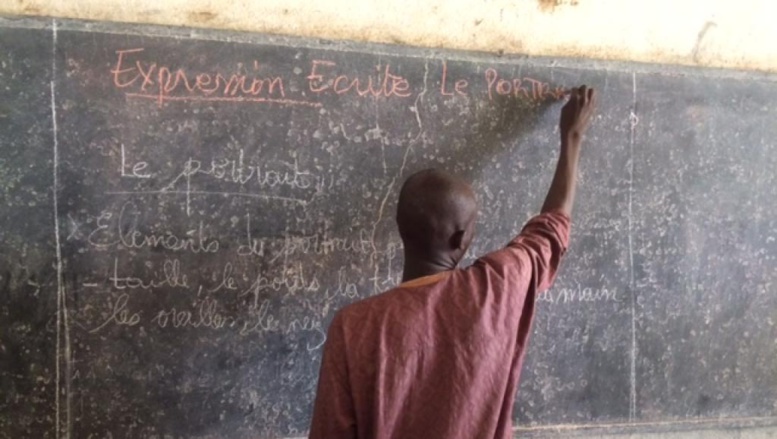 Expression Ecrite Le PORTRA
Le portrait
Elements du portrait
- taille, le poids, la
les oreilles, le nez main